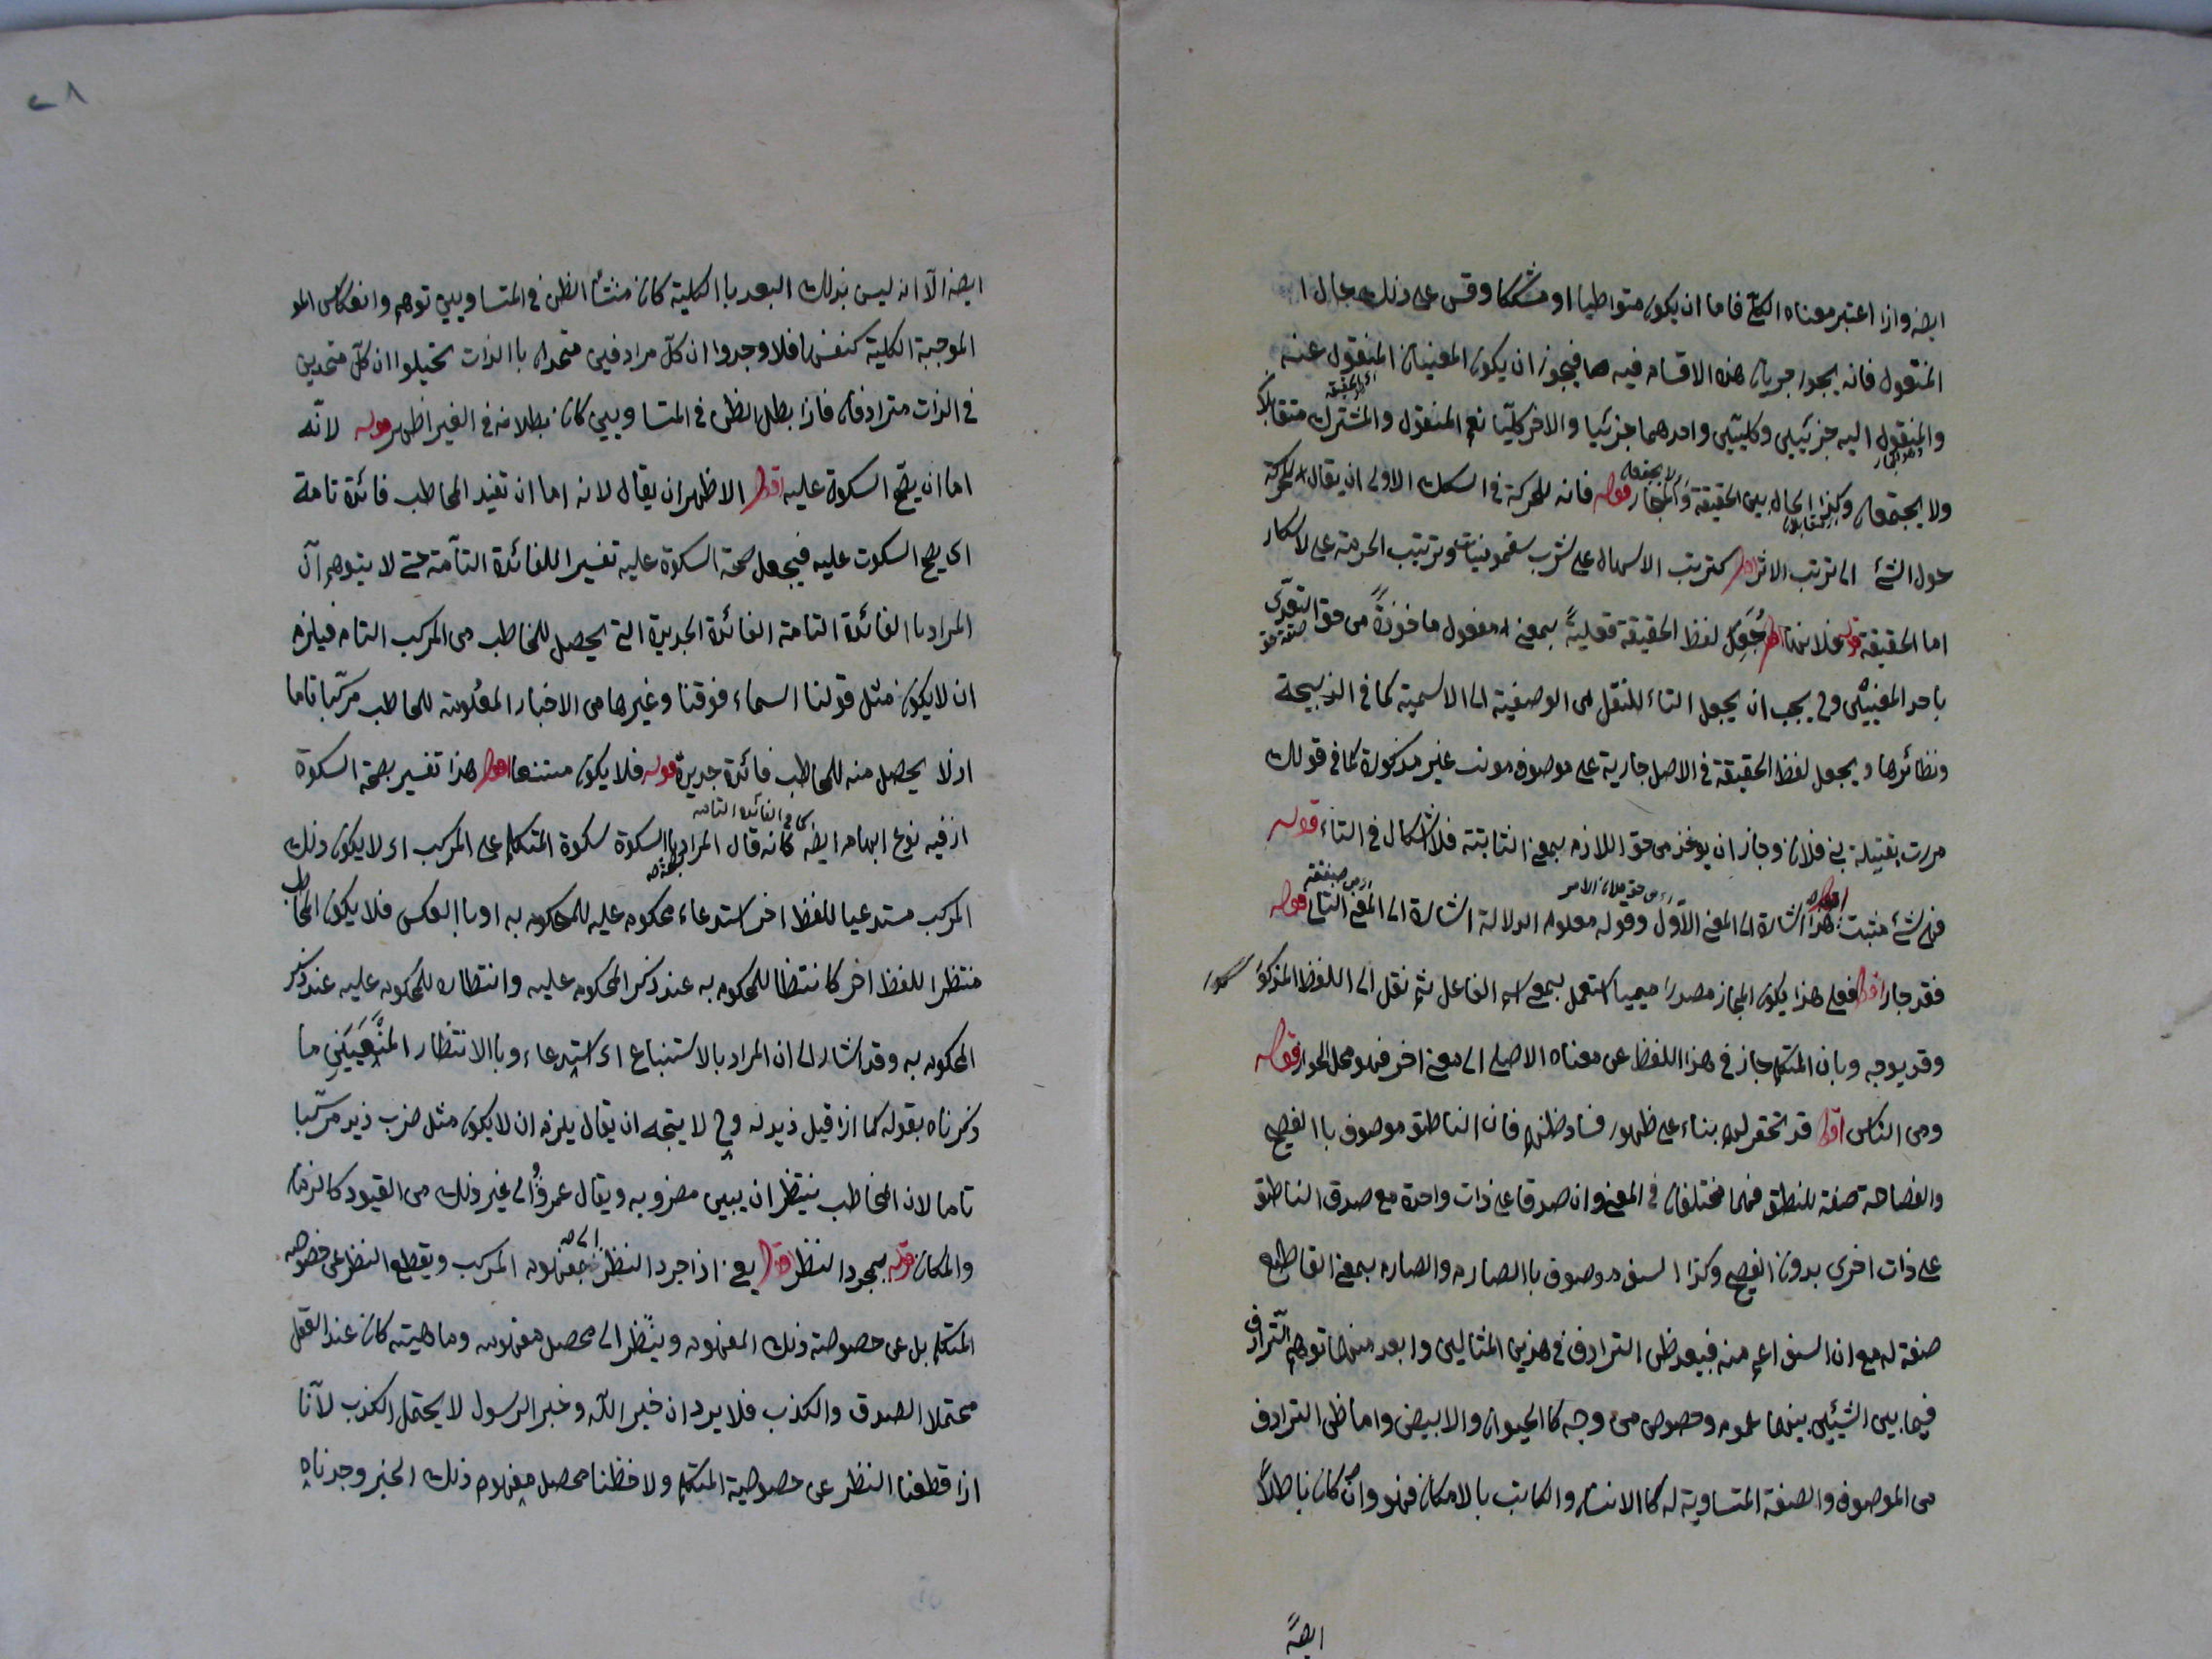 ايضه واذا اعتبر معناه الكلي فاما ان يكون متواطيا او مشككا وقس على ذلك حال ا
المنقول فانه يجوز جريان هذه الاقسام فيه فيجوز ان يكون المعنيان المنقول عنه
والمنقول اليه جزئيين وكليين واحدهما جزئيا والاخر كليا نعم المنقول والمشترك متقابلان
ولا يجتمعان وكذا الحال بين الحقيقة والمجاز قوله فانه للحركة في السكك الاولى ان يقال للحركة
حول الشئ الى ترتب الاثر اقول كترتب الاسهال على شرب سقمونيات وترتيب الحرمة على الاسكار
اما الحقيقة قوله فلانها اقول جعل لفظ الحقيقة فعلية بمعنى مفعول ماخوذة من حق المتعدى
باحد المعنيين وح يجب ان يجعل التاء للنقل من الوصفية الى الاسمية كما في الذبيحة
ونظائرها ويجعل لفظ الحقيقة في الاصل جارية على موصوف مونث غير مذكورة كما في قولك
مررت بقتيلة بني فلان وجاز ان يوخذ من حق اللازم بمعنى الثابتة فلا اشكال في التاء قوله
فهي شئ مثبت اقول هذا اشارة الى المعنى الاول وقوله معلوم الدلالة اشارة الى المعنى الثاني قوله
فقد جاز اقول فعلى هذا يكون المجاز مصدرا ميميا استعمل بمعنى اسم الفاعل ثم نقل الى اللفظ المذكور
وقد يوجه وبان المتكلم جاز في هذا اللفظ عن معناه الاصلي الى معنى اخر فهو محل الجواز قوله
ومن الناس اقول قد تحقر لهم بناء على ظهور فساد ظنهم فان الناطق موصوف باالفصيح
والفصاحة صفة للنطق فهما مختلفان في المعنى وان صدقا على ذات واحدة مع صدق الناطق
على ذات اخرى بدون الفصيح وكذا السيف موصوف باالصارم والصارم بمعنى القاطع
صفة له مع ان السيف اعم منه فبعد ظن الترادف في هذين المثالين وابعد منهما توهم الترادف
فيما بين الشيئين بينهما عموم وخصوص من وجه كا الحيوان والابيض واما ظن الترادف
من الموصوف والصفة المتساوية له كا الانسان والكاتب بالامكان فهو وان كان باطلا
ايضه
٢٨
ايضه الا انه ليس بذلك البعد باالكلية كان منشأ الظن في المتساويين توهم وانعكاس المو
الموجبة الكلية كنفسها فلا وجدوا ان كل مرادفين متحدان باالذات تخيلوا ان كل متحدين
في الذات مترادفان فاذا بطل الظن في المتساويين كان بطلانه في الغير اظهر قوله لانه
اما ان يصح السكوة عليه اقول الاظهر ان يقال لانه اما ان تفيد المخاطب فائدة تامة
اى يصح السكوت عليه فيجعل صحة السكوة عليه تفسيرا للفائدة التامة حتى لا يتوهم ان
المراد باالفائدة التامة الفائدة الجديدة التي يحصل للمخاطب من المركب التام فيلزم
ان لا يكون مثل قولنا السماء فوقنا وغيرها من الاخبار المعلومة للمخاطب مركبا تاما
اذ لا يحصل منه للمخاطب فائدة جديدة قوله فلا يكون مستتبعا اقول هذا تفسير بصحة السكوة
اذ فيه نوع ابهام ايضه كما في الفائدة التامة كانه قال المراد باالسكوة سكوة المتكلم على المركب اى لا يكون ذلك
المركب مستدعيا للفظ اخر استدعاء محكوم عليه للمحكوم به او باالعكس فلا يكون المخاطب
منتظرا للفظ اخر كا نتظا للمحكوم به عند ذكر المحكوم عليه وانتظاره للمحكوم عليه عند ذكر
المحكوم به وقد اشار الى ان المراد بالاستتباع اى استدعاء وباالانتظار المنفيين ما
ذكرناه بقوله كما اذا قيل زيد له وح لا يتجه ان يقال يلزم ان لا يكون مثل ضرب زيد مركبا
تاما لان المخاطب ينتظر ان يبين مضروبه ويقال عمرو الى غير ذلك من القيود كا الزمان
والمكان قوله بمجرد النظر اقول يعنى اذا جرد النظر الى مفهوم المركب ويقطع النظر عن خصوصه
المتكلم بل عن خصوصة ذلك المفهوم وينظر الى محصل مفهومه وماهيته كان عند العقل
محتملا الصدق والكذب فلا يرد ان خبر الله وخبر الرسول لا يحتمل الكذب لانا
اذا قطعنا النظر عن خصوصية المتكلم ولاحظنا محصل مفهوم ذلك الخبر وجدناه